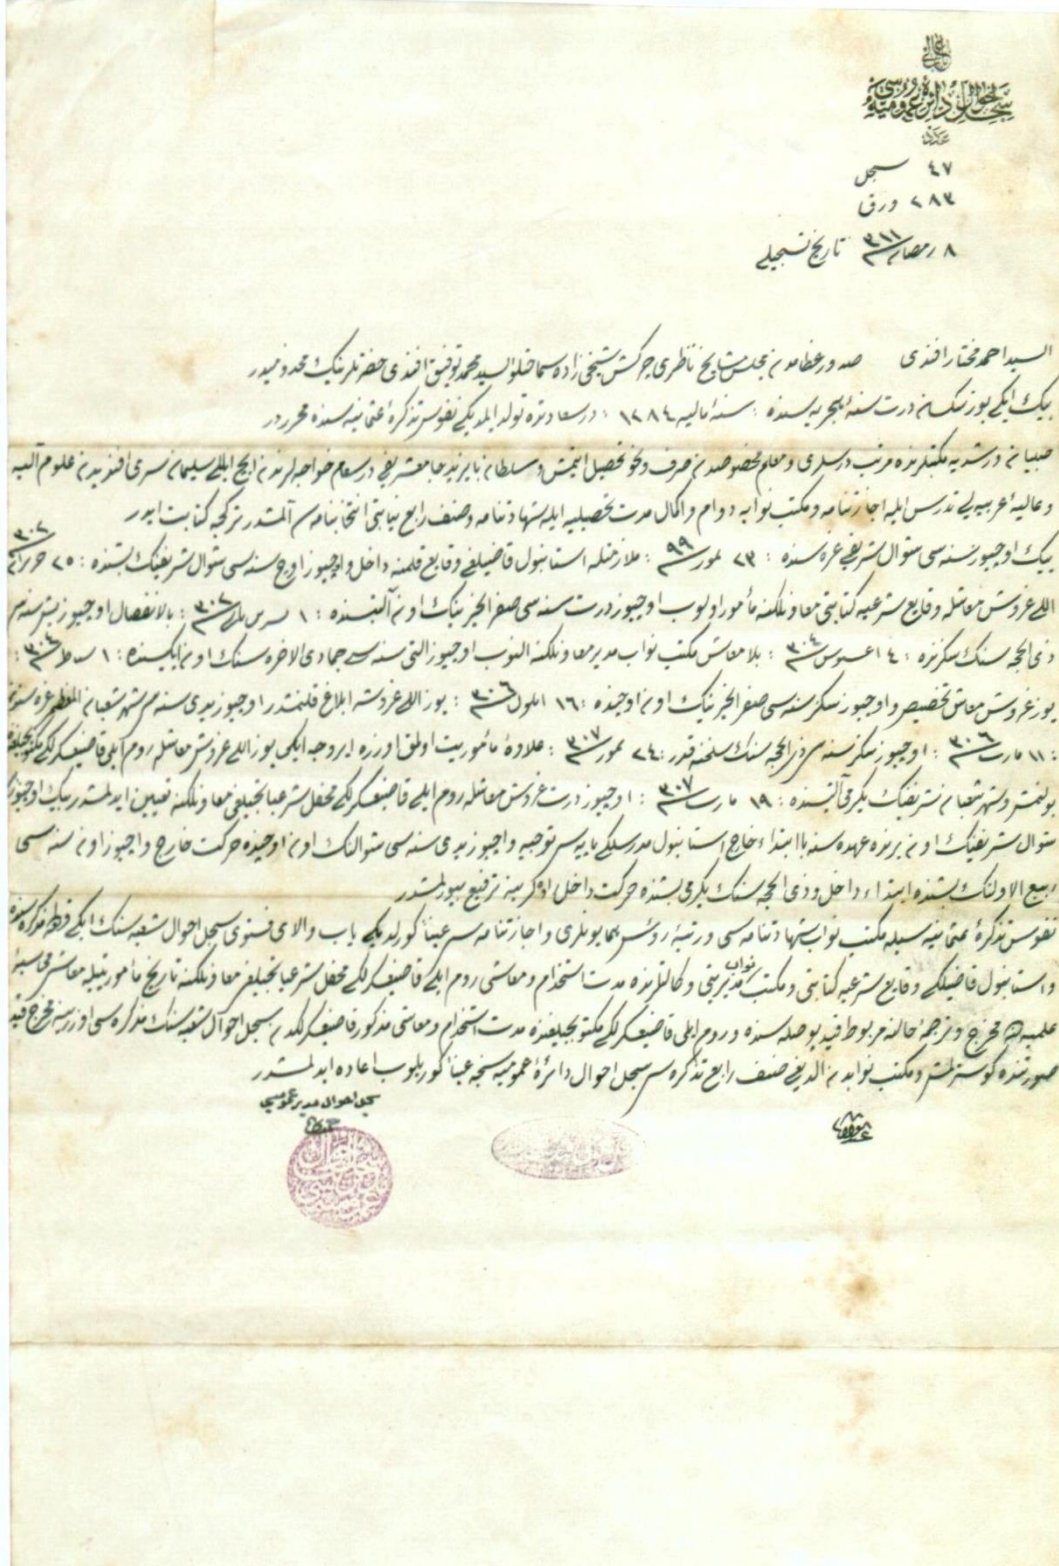 باب عالی
سجل احوال دائره عمومیه سی
عدد
٤٧ سجل
٢٨٣ ورق
٨ رمضان ٣١١ تاریخ تسجیلی
السید احمد مختار افندی صدور عظامدن مجلس مشایخ ناظری چرکشی شیخی زاده سماحتلو السید محمد توفیق افندی حضرتلرینک مخدومیدر
بیک ایکیوز سکسان درت سنۀ هجریه سنده : سنۀ مالیه ١٢٨٤ : درسعادتده تولد ایلدیکی نفوس تذکرۀ عثمانیه سنده محرردر
صبیان و رشدیه مکتبلرنده مرتب درسلری و معلم مخصوصدن صرف و نحو تحصیل ایتمش و سلطان بایزید جامع شریفی درسعام خواجه لرندن ایچ ایللی سلیمان سری افندیدن علوم آلیه
و عالیۀ عربیه یی تدرس ایله اجازتنامه و مکتب نوابه دوام و اکمال مدت تحصیلیه ایله شهادتنامه و صنف رابع نیابتی انتخابنامه سن آلمشدر ترکجه کتابت ایدر
بیک اوچیوز سنه سی شوال شریفی غره سنده : ٢٣ تموز ٩٩ : ملازمتله استانبول قاضیلغی وقایع قلمنه داخل و اوچیوز اوچ سنه سی شوال شریفنک بشنده : ٢٥ حزیران ٣٠٢
اللی غروش معاشله وقایع شرعیه کتابتی معاونلکنه مأمور اولوب اوچیوز درت سنه سی صفر الخیرینک اون آلتسنده : ١ تشرین ثانی ٣٠٢ : بالانفصال اوچیوز بش سنه سی
ذی الحجه سنک سکزنده : ١٤ اغستوس ٣٠٤ : بلا معاش مکتب نواب مدیر معاونلکنه آلنوب اوچیوز التی سنه سی جمادی الاخره سنک اون ایکیسنده : ١ شباط ٣٠٤ :
یوز غروش معاش تخصیص و اوچیوز سکز سنه سی صفر الخیرینک اون اوچنده : ١٦ ایلول ٣٠٦ : یوز اللی غروشه ابلاغ قلنمشدر اوچیوز یدی سنه سی شهر شعبان المعظم غره سندن
: ١١ مارت ٣٠٦ : اوچیوز سکز سنه سی ذی الحجه سنک سلخنه قدر : ٢٤ تموز ٣٠٧ : علاوۀ مأموریت اولمق اوزره ایروجه ایکی یوز اللی غروش معاشله روم ایلی قاضیعسکرلکی مکتوبجیلغنده
بولنمش و شهر شعبان شریفنک یکرمی آلتیسنده : ١٩ مارت ٣٠٧ : اوچیوز درت غروش معاشله روم ایلی قاضیعسکرلکی محفل شرعیاتجیلغی معاونلکنه تعیین ایدلمشدر بیک اوچیوز
شوال شریفنک اون برنده عهده سنه با ابتداء خارج استانبول مدرسلکی پایه سی توجیه و اوچیوز یدی سنه سی شوالنک اون اوچنده حرکت خارج و اوچیوز اون سنه سی
ربیع الاولنک بشنده ابتداء داخل و ذی الحجه سنک یکرمی بشنده حرکت داخل اوکرینه ترفیع بیورلمشدر
نفوس تذکرۀ عثمانیه سیله مکتب نواب شهادتنامه سی و رتبۀ رؤس همایونلری و اجازتنامه سی عیناً کورلدیکی باب والای فتوی سجل احوال شعبه سنک ایکی قطعه مذکره سنده
و استانبول قاضیلکی وقایع شرعیه کتابتی و مکتب نواب مدیریتی وکالتلرنده مدت استخدام و معاشی روم ایلی قاضیعسکرلکی محفل شرعیاتجیلغی معاونلکنه تاریخ مأموریتیله معاشی محاسبۀ
علمیه دن مخرج و ترجمۀ حالنه مربوط قید پوصله سنده و روم ایلی قاضیعسکرلکی مکتوبجیلغنده مدت استخدام و معاشی مذکور قاضیعسکرلکدن سجل احوال شعبه سنک مذکره سی اوزرینه مخرج قید
صورتنده کوسترلمش و مکتب نوابدن آلدیغی صنف رابع تذکره سی سجل احوال دائرۀ عمومیه سنجه عیناً کوریلوب اعاده ایدلمشدر
سجل احوال مدیر عمومیسی